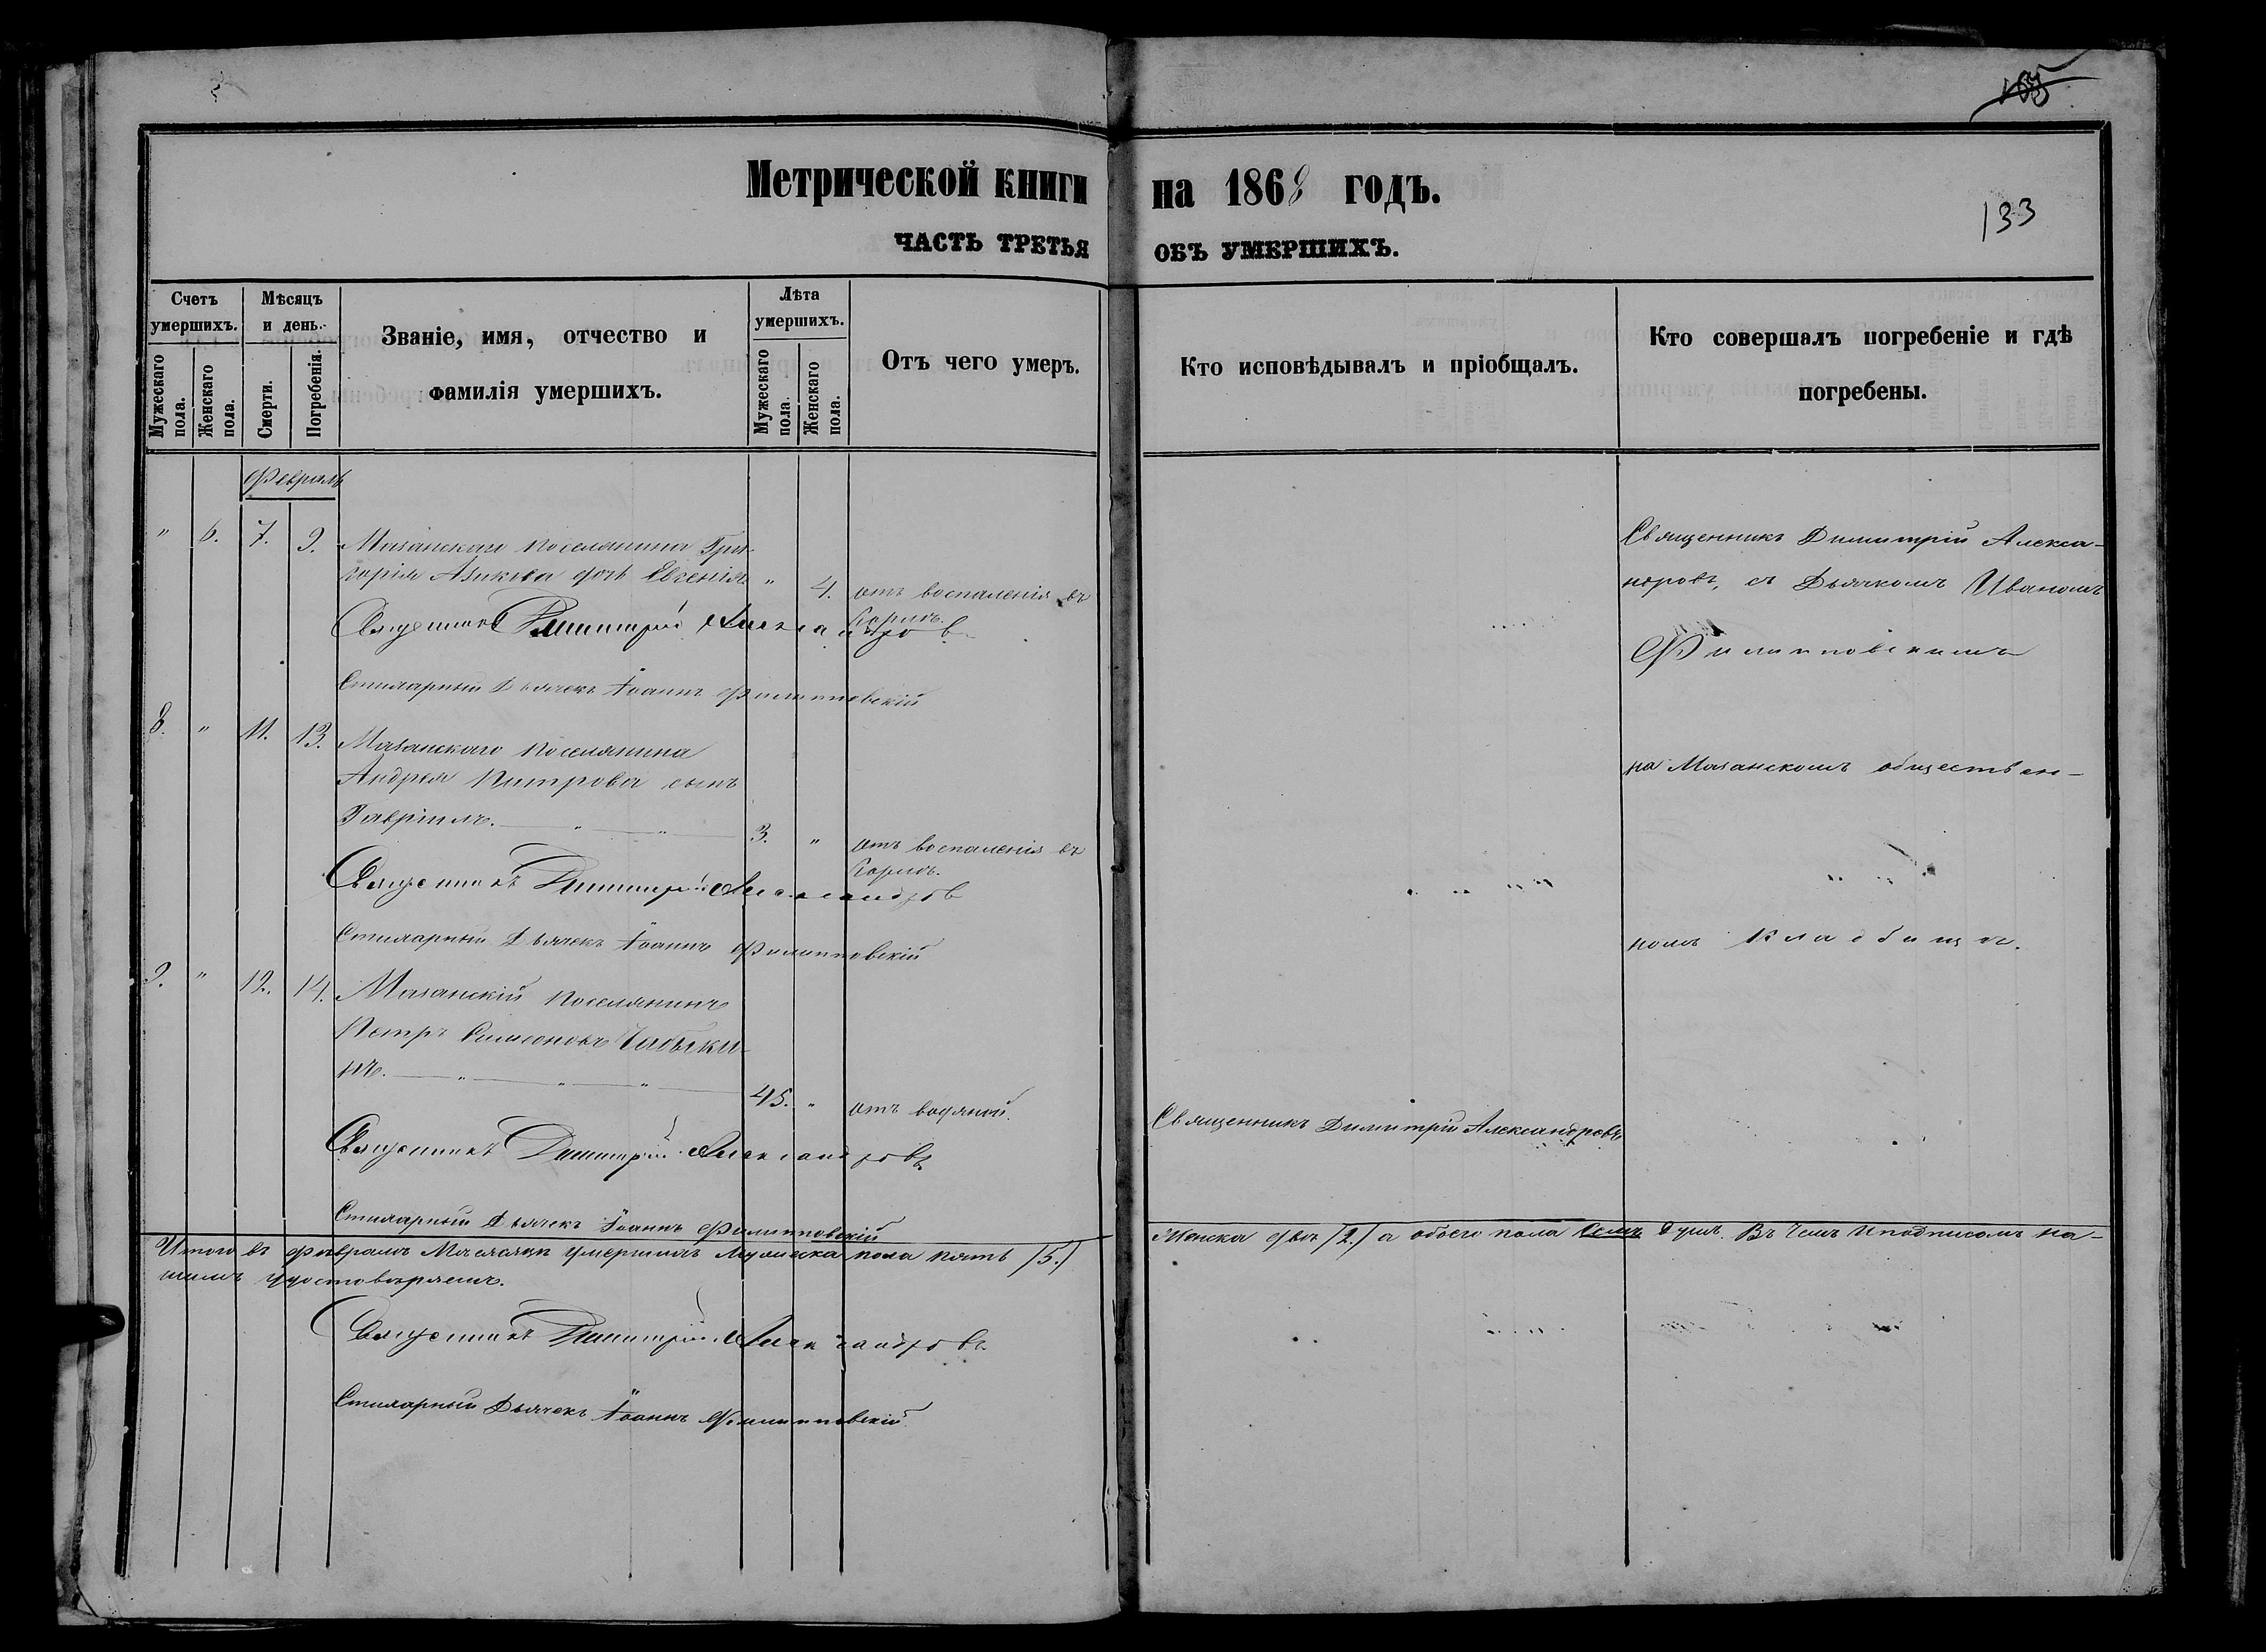 105
Метрической книги на 1868 годъ.
133
ЧАСТЬ ТРЕТЬЯ ОБЪ УМЕРШИХЪ.
Счетъ умершихъ.
Мужескаго пола.
Женскаго пола.
Мѣсяцъ и день.
Смерти.
Погребенія.
Званіе, имя, отчество и
фамилія умершихъ.
Лѣта умершихъ.
Мужескаго пола.
Женскаго пола.
Отъ чего умеръ.
Кто исповѣдывалъ и пріобщалъ.
Кто совершалъ погребеніе и гдѣ
погребены.
Февраль
" 6. 7. 9. Мазанскаго поселянина Гри-
горія дочь Евгенія " 4. отъ воспаленія въ
горлѣ.
Священникъ Димитрій Александровъ
Стихарный Дьячекъ Іоаннъ Филипповскій
Священникъ Димитрій Алекса-
ндровъ, съ Дьячкомъ Иваномъ
Филипповскимъ
8. " 11. 13. Мазанскаго поселянина
Андрея Петрова сынъ
Гавріилъ. 3. " отъ воспаленія въ
горлѣ.
Священникъ Димитрій Александровъ
Стихарный Дьячекъ Іоаннъ Филипповскій
на Мазанскомъ обществен-
номъ кладбищѣ.
9. " 12. 14. Мазанскій поселянинъ
Петръ Симеоновъ
нъ. 45. " отъ водяной.
Священникъ Димитрій Александровъ
Священникъ Димитрій Александровъ
Стихарный Дьячекъ Іоаннъ Филипповскій
Итого въ февралѣ Мѣсяцѣ умершихъ Мужеска пола пять /5./ Женска двѣ /2./ а обоего пола семь душъ. Въ чемъ и подписомъ на-
шимъ удостовѣряемъ.
Священникъ Димитрій Александровъ
Стихарный Дьячекъ Іоаннъ Филипповскій